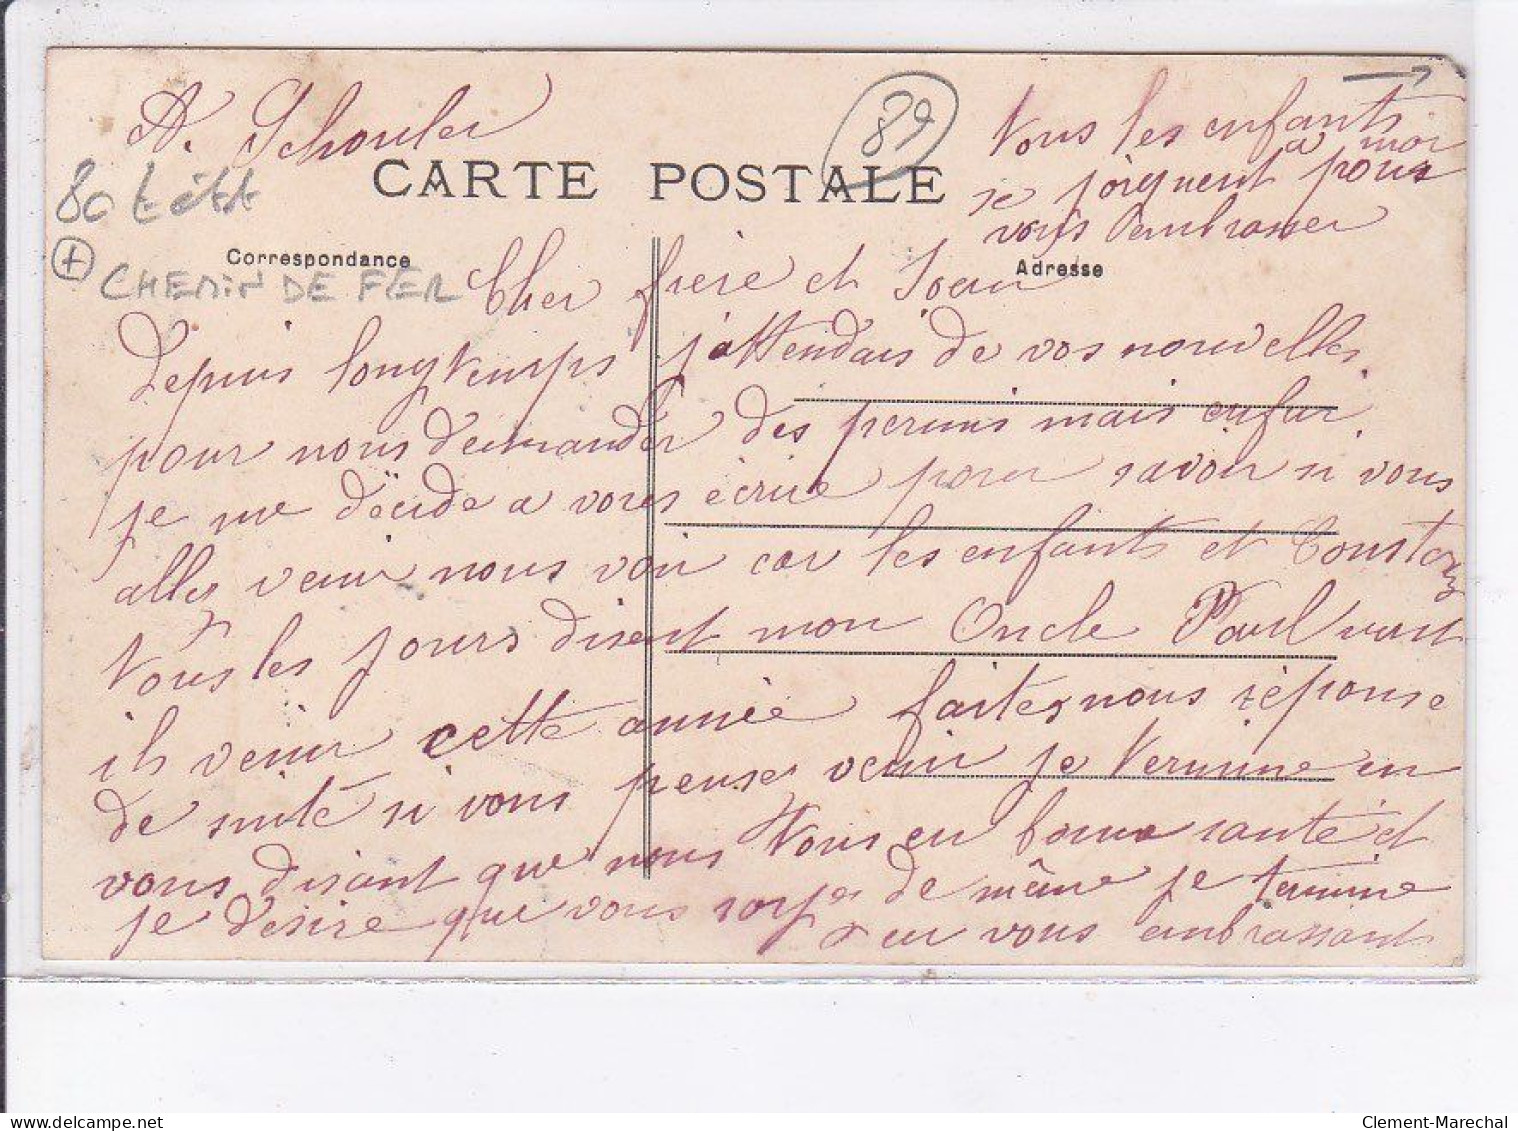 A. Schouler
89
Tous les enfants
à moi
se joignent pour
vous embrasser
80 t état
CARTE POSTALE
+
CHEMIN DE FER
Correspondance
Adresse
Cher frère et Soeur
Depuis longtemps j'attendais de vos nouvelles
pour nous demander des permis mais enfin
je me décide a vous écrire pour savoir si vous
allez venir nous voir car les enfants et
Tous les jours disent mon Oncle Paul vast
ils venir cette année faites nous réponse
de suite si vous pense venir je termine en
vous disant que nous Tous en bonne santé et
je desire que vous soyes de même je termine
en vous embrassant
Clement-Marechal